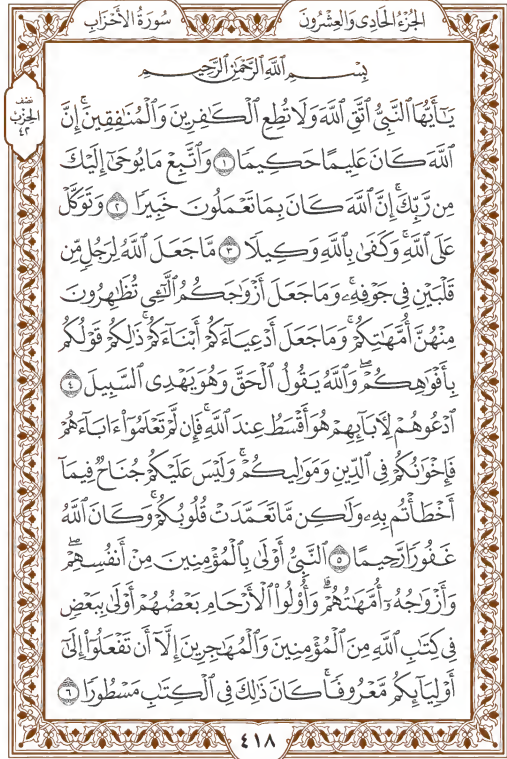 الجُزْءُ الحَادِى وَالعِشْرُونَ
سُورَةُ الأَحْزَابِ
نصف
الحِزْب
٤٢
بِسْمِ ٱللَّهِ ٱلرَّحْمَٰنِ ٱلرَّحِيمِ
يَٰٓأَيُّهَا ٱلنَّبِىُّ ٱتَّقِ ٱللَّهَ وَلَا تُطِعِ ٱلْكَٰفِرِينَ وَٱلْمُنَٰفِقِينَۗ إِنَّ
ٱللَّهَ كَانَ عَلِيمًا حَكِيمًا ١ وَٱتَّبِعْ مَا يُوحَىٰٓ إِلَيْكَ
مِن رَّبِّكَۚ إِنَّ ٱللَّهَ كَانَ بِمَا تَعْمَلُونَ خَبِيرًا ٢ وَتَوَكَّلْ
عَلَى ٱللَّهِۚ وَكَفَىٰ بِٱللَّهِ وَكِيلًا ٣ مَّا جَعَلَ ٱللَّهُ لِرَجُلٍ مِّن
قَلْبَيْنِ فِى جَوْفِهِۦۚ وَمَا جَعَلَ أَزْوَٰجَكُمُ ٱلَّٰٓـِٔى تُظَٰهِرُونَ
مِنْهُنَّ أُمَّهَٰتِكُمْۚ وَمَا جَعَلَ أَدْعِيَآءَكُمْ أَبْنَآءَكُمْۚ ذَٰلِكُمْ قَوْلُكُم
بِأَفْوَٰهِكُمْۖ وَٱللَّهُ يَقُولُ ٱلْحَقَّ وَهُوَ يَهْدِى ٱلسَّبِيلَ ٤
ٱدْعُوهُمْ لِـَٔابَآئِهِمْ هُوَ أَقْسَطُ عِندَ ٱللَّهِۚ فَإِن لَّمْ تَعْلَمُوٓا۟ ءَابَآءَهُمْ
فَإِخْوَٰنُكُمْ فِى ٱلدِّينِ وَمَوَٰلِيكُمْۚ وَلَيْسَ عَلَيْكُمْ جُنَاحٌ فِيمَآ
أَخْطَأْتُم بِهِۦ وَلَٰكِن مَّا تَعَمَّدَتْ قُلُوبُكُمْۚ وَكَانَ ٱللَّهُ
غَفُورًا رَّحِيمًا ٥ ٱلنَّبِىُّ أَوْلَىٰ بِٱلْمُؤْمِنِينَ مِنْ أَنفُسِهِمْۖ
وَأَزْوَٰجُهُۥٓ أُمَّهَٰتُهُمْۗ وَأُو۟لُوا۟ ٱلْأَرْحَامِ بَعْضُهُمْ أَوْلَىٰ بِبَعْضٍ
فِى كِتَٰبِ ٱللَّهِ مِنَ ٱلْمُؤْمِنِينَ وَٱلْمُهَٰجِرِينَ إِلَّآ أَن تَفْعَلُوٓا۟ إِلَىٰٓ
أَوْلِيَآئِكُم مَّعْرُوفًاۚ كَانَ ذَٰلِكَ فِى ٱلْكِتَٰبِ مَسْطُورًا ٦
٤١٨